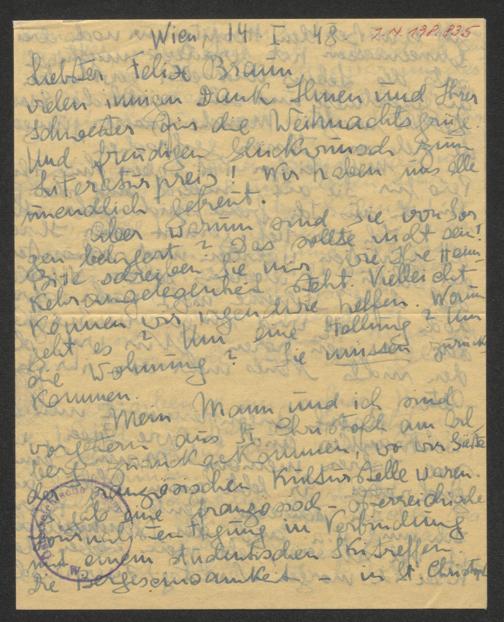 Wien, 14 I 48
I.N. 198.835
Liebster Felix Braun,
vielen innigen Dank Ihnen und Ihrer
Schwester für die Weihnachtsgrüße
Und freudigen Glückwunsch zum
Literaturpreis! Wir haben uns alle
unendlich gefreut.
Aber warum sind Sie von Sor
gen belagert? Das sollte nicht sein!
Bitte schreiben Sie mir wie Ihre Heim
kehrangelegenheit steht. Vielleicht
können wir irgendwie helfen. Worum
geht es? Um eine Stellung? Um
die Wohnung? Sie müssen zurück
kommen.
Mein Mann und ich sind
vorgestern aus St. Christoph am Arl
berg zurückgekommen, wo wir Gäste
der französischen Kulturstelle waren.
Es gab eine französisch-österreichische
tagung in Verbindung
mit einem studentischen Skitreffen
Die Bergeseinsamkeit – in St. Christoph